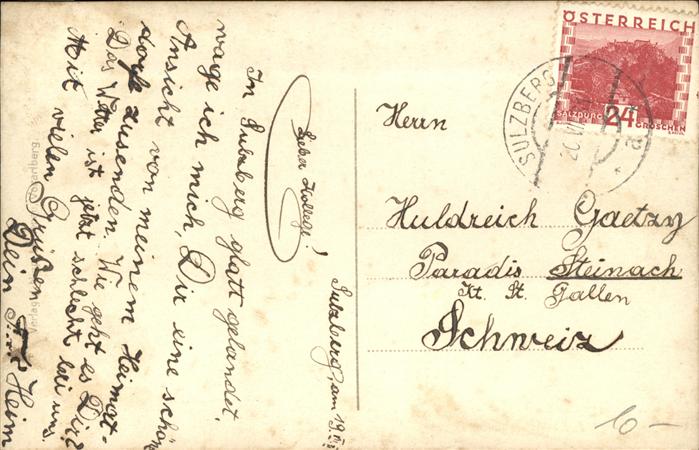 Sulzberg, am 19.
Lieber Kollege!
In Sulzberg glatt gelandet,
wage ich mich, Dir eine schöne
Ansicht von meinem Heimat-
dorfe zusenden. Wie geht es Dir?
Das Wetter ist jetzt schlecht bei uns.
Mit vielen Grüßen
Dein Heim
Verlag
ÖSTERREICH
SALZBURG 24 GROSCHEN
SULZBERG
Herrn
Huldreich Gaetzy
Paradis Steinach
Kt. St. Gallen
Schweiz
10-